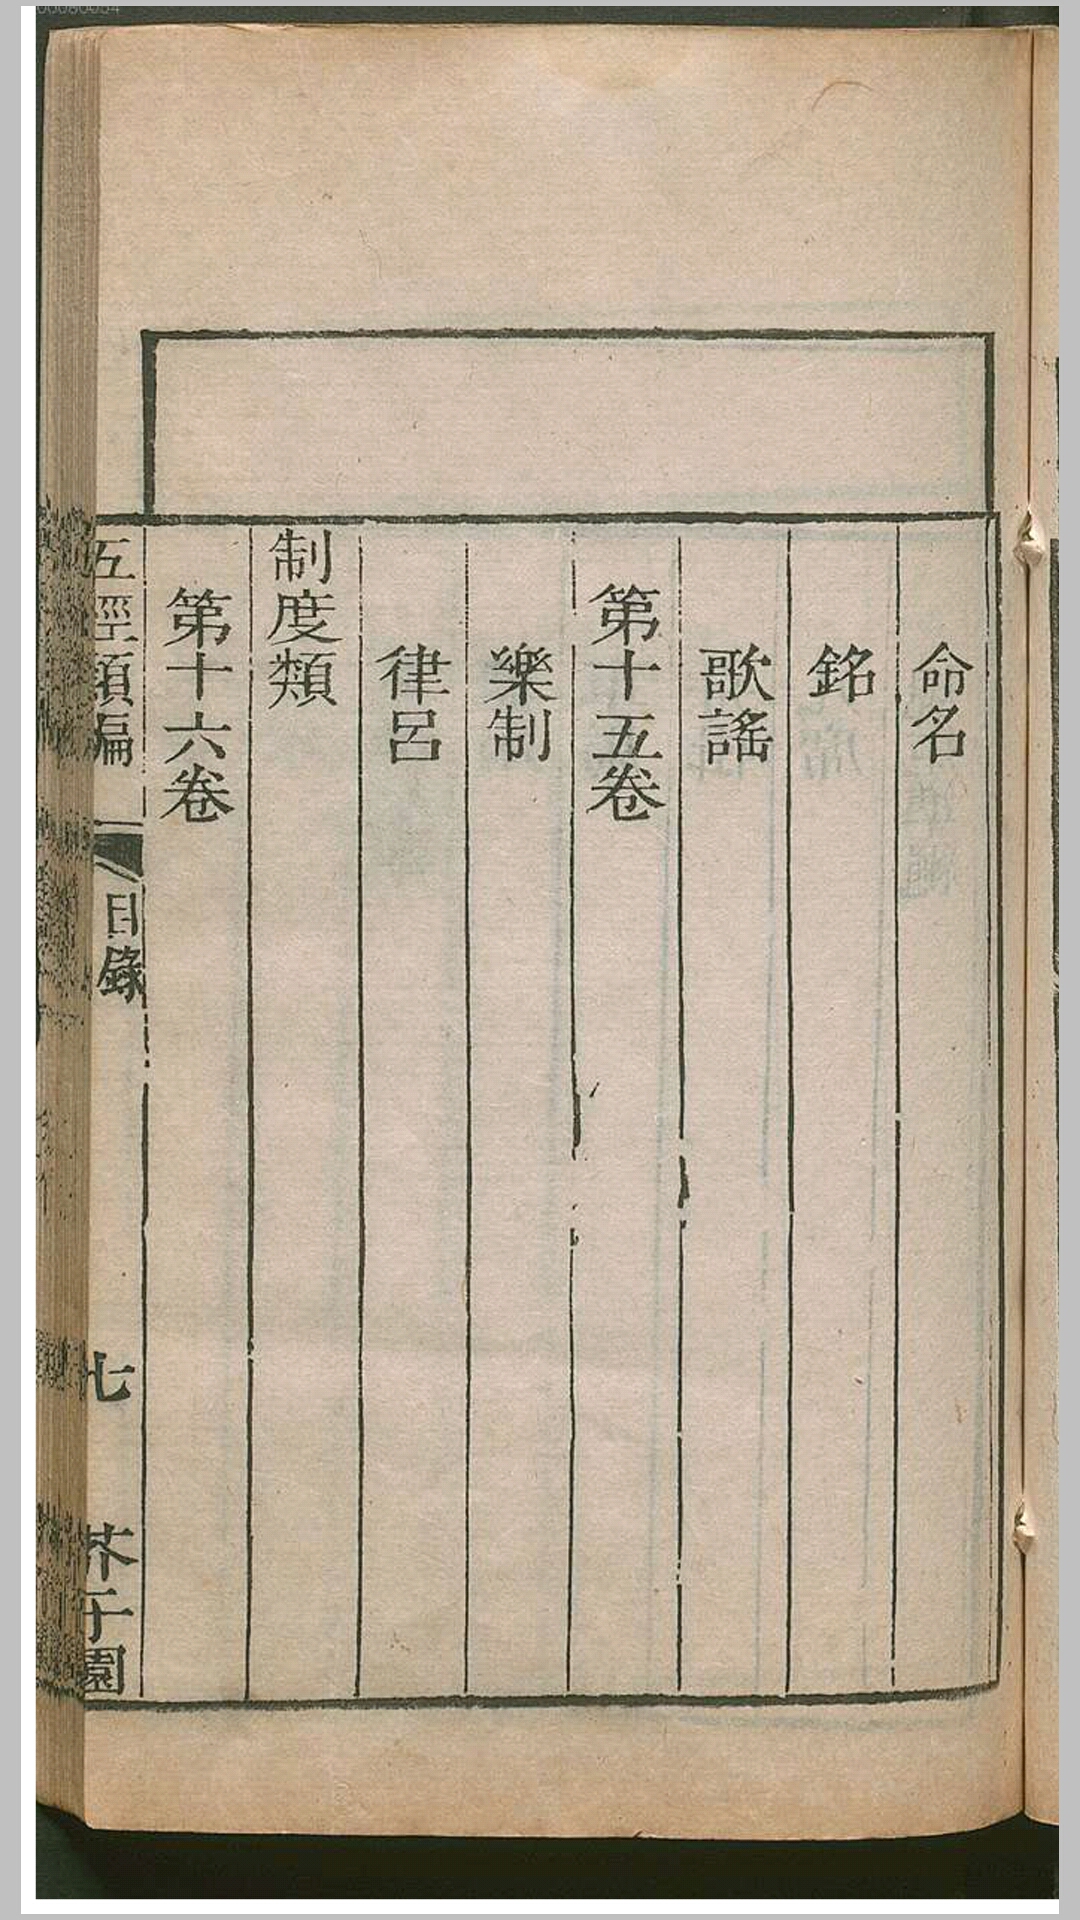 命名
銘
歌謠
第十五卷
樂制
律呂
制度類
第十六卷
五經類編
目錄
七
芥子園